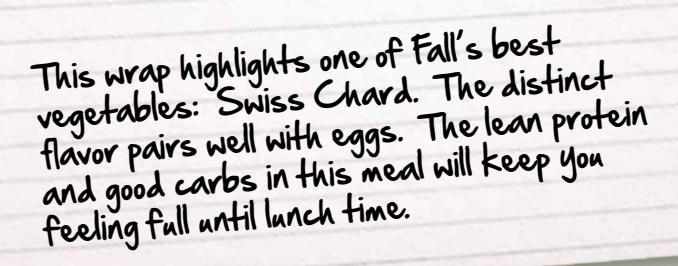 This wrap highlights one of Fall's best
vegetables: Swiss Chard. The distinct
flavor pairs well with eggs. The lean protein
and good carbs in this meal will keep you
feeling full until lunch time.